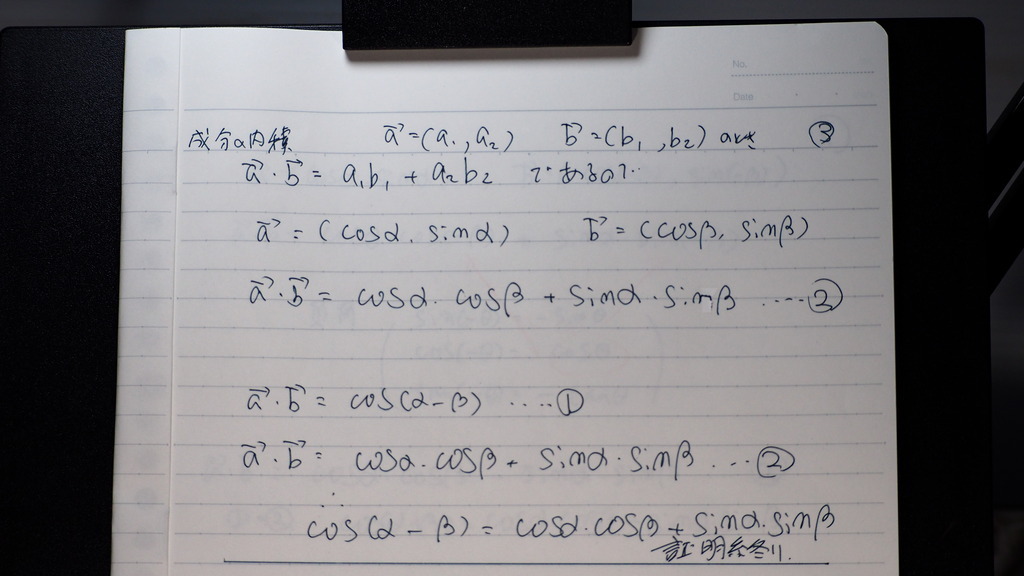 No.
Date
成分の内積 a⃗=(a₁, a₂) b⃗=(b₁, b₂) のとき ③
a⃗·b⃗ = a₁b₁ + a₂b₂ であるので…
a⃗ = (cosα, sinα) b⃗ = (cosβ, sinβ)
a⃗·b⃗ = cosα·cosβ + sinα·sinβ ····②
a⃗·b⃗ = cos(α-β) ····①
a⃗·b⃗ = cosα·cosβ + sinα·sinβ ···②
∴ cos(α-β) = cosα·cosβ + sinα·sinβ
証明終り.